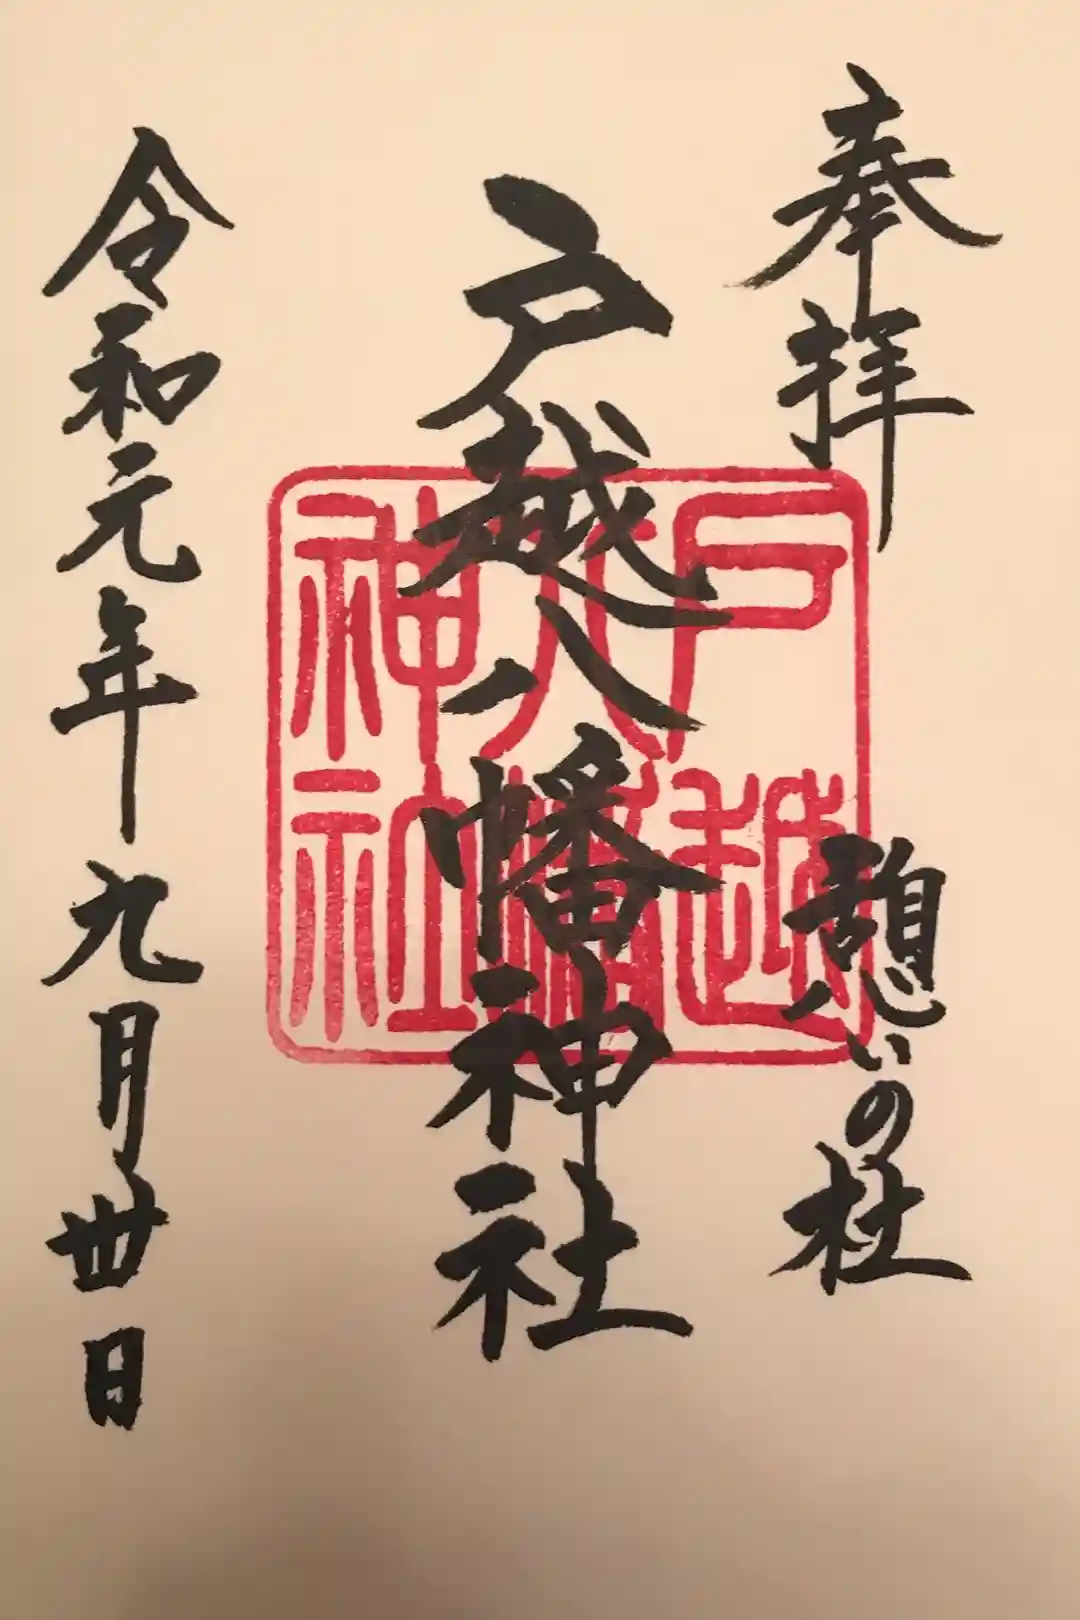 奉拝
憩いの杜
戸越八幡神社
戸越
八幡
神社
令和元年九月卅日